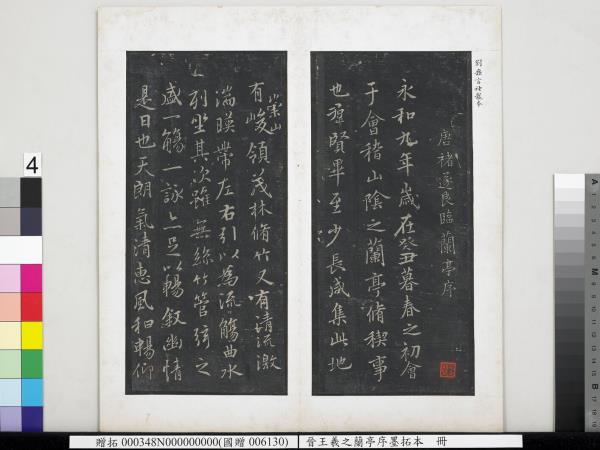 唐褚遂良臨蘭亭序
永和九年歲在癸丑暮春之初會
于會稽山陰之蘭亭脩稧事
也羣賢畢至少長咸集此地
有崇山峻領茂林脩竹又有清流激
湍暎帶左右引以為流觴曲水
列坐其次雖無絲竹管弦之
盛一觴一詠亦足以暢叙幽情
是日也天朗氣清惠風和暢仰
4
贈拓 000348N000000000(國贈 006130)
晉王羲之蘭亭序墨拓本 冊